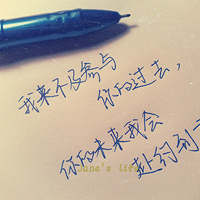 我来不及参与
你的过去，
你的未来我会
赴约到
June's life